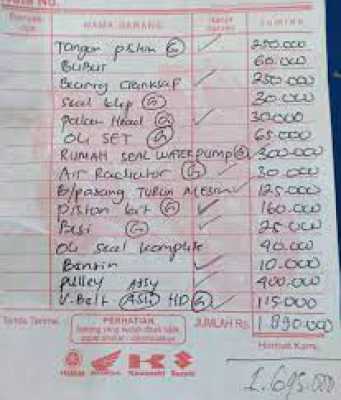 Nota No.
Banyak nya NAMA BARANG Harga Satuan JUMLAH
Tangan piston G ✓ 250.000
BUBUT 60.000
Bearing cranksaf ✓ 250.000
Seal klep G 30.000
Paken Head G ✓ 30.000
OLI SET G 65.000
RUMAH SEAL WATERpump G 300.000
AIR Radiator G ✓ 30.000
B/pasang TURUN MESIN ✓ 125.000
Piston kit G ✓ 160.000
Besi G ✓ 25.000
Oli seal komplite 40.000
Bensin ✓ 10.000
pulley Assy ✓ 400.000
V-Belt Asli HD G ✓ 115.000
Tanda Terima PERHATIAN JUMLAH Rp. 1.890.000
Barang yang sudah dibeli tidak
Hormat Kami,
HONDA Kawasaki Suzuki
1.695.000